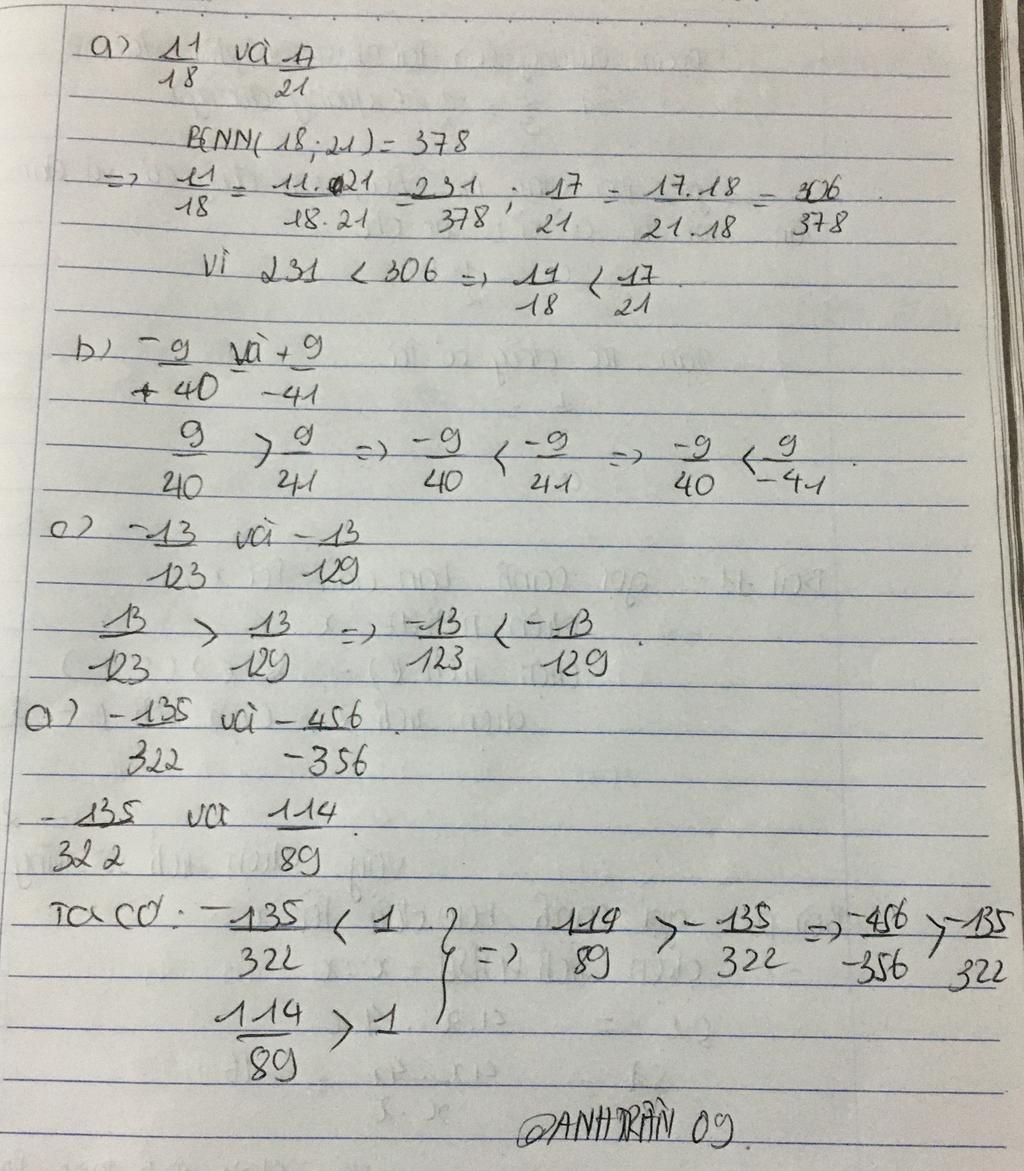 a) 11/18 và 17/21
BCNN(18;21) = 378
=> 11/18 = 11.21/18.21 = 231/378 ; 17/21 = 17.18/21.18 = 306/378
Vì 231 < 306 => 11/18 < 17/21.
b) -9/+40 và +9/-41
9/40 > 9/41 => -9/40 < -9/41 => -9/40 < 9/-41.
c) -13/123 và -13/129
13/123 > 13/129 => -13/123 < -13/129.
a) -135/322 và -456/-356.
-135/322 và 114/89.
Ta có: -135/322 < 1 } => 114/89 > -135/322 => -456/-356 > -135/322
114/89 > 1
@ANHTRẦN 09.